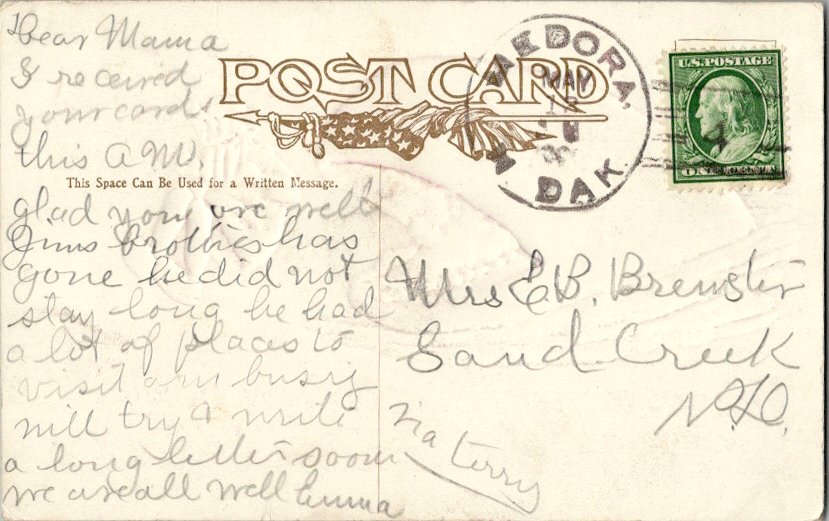 Dear Mama
I received
your cards
this A.M.
glad you are well
Jims brother has
gone he did not
stay long he had
a lot of places to
visit am busy
will try & write
a long letter soon
we are all well Emma
POST CARD
This Space Can Be Used for a Written Message.
MEDORA,
MAY
N. DAK.
U.S. POSTAGE
Mrs E.B. Brewster
Sand Creek
N.D.
Via Terry